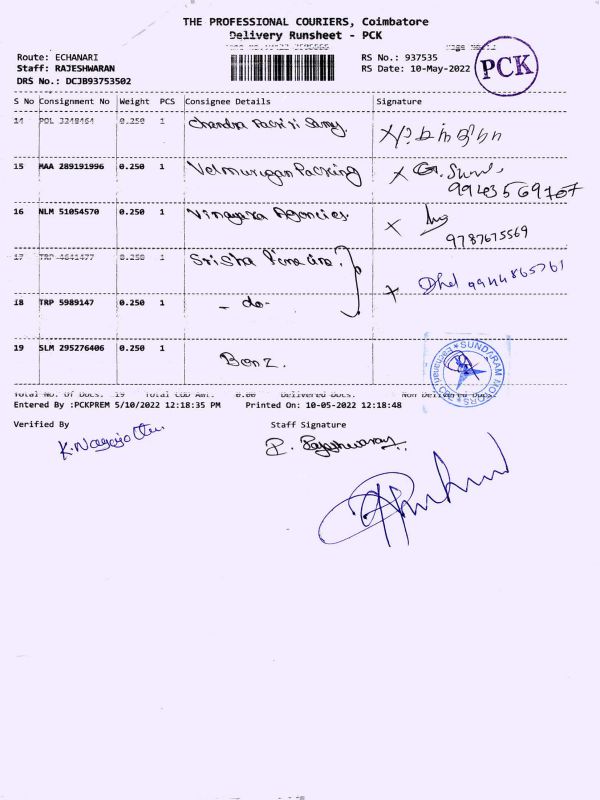 THE PROFESSIONAL COURIERS, Coimbatore
Delivery Runsheet - PCK
Route: ECHANARI
RS No.: 937535
Staff: RAJESHWARAN
RS Date: 10-May-2022
PCK
DRS No.: DCJB93753502
S No Consignment No Weight PCS Consignee Details Signature
14 POL 0.250 1 Chandra
15 MAA 289191996 0.250 1 Velmurugan Packing
9943569707
16 NLM 51054570 0.250 1 Vinayaga Agencies.
9787675569
17 TRP 4641477 0.250 1 Srisha
9944865761
18 TRP 5989147 0.250 1 - do-
19 SLM 295276406 0.250 1 Benz.
SUNDARAM MOTORS
Total No. Of Docs. 19 Total COD Amt. 0.00 Delivered Docs. Non Delivered Docs.
Entered By :PCKPREM 5/10/2022 12:18:35 PM Printed On: 10-05-2022 12:18:48
Verified By Staff Signature